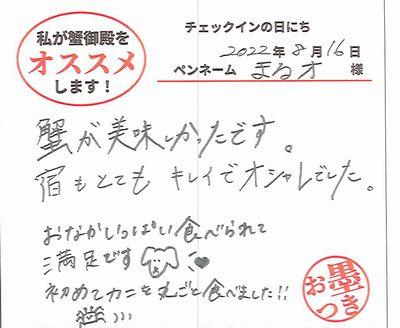 私が蟹御殿を
オススメ
します！
チェックインの日にち
2022年8月16日
ペンネーム まるオ 様
蟹が美味しかったです。
宿もとても キレイでオシャレでした。
おなかいっぱい食べられて
満足です
初めてカニを丸ごと食べました!!
お墨つき